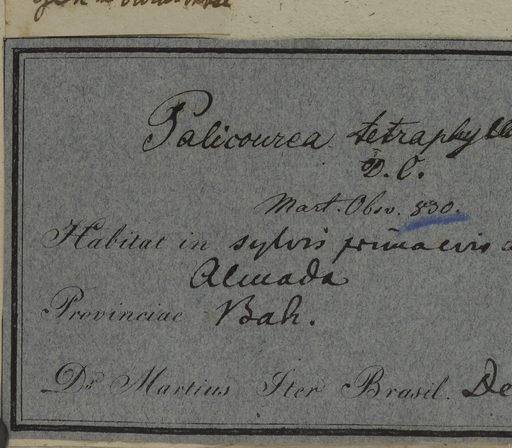 Palicourea tetraphylla
D. C.
Mart. Obs. 830.
Habitat in sylvis primaevis
Almada
Provinciae Bah.
Dr Martius Iter Brasil. De